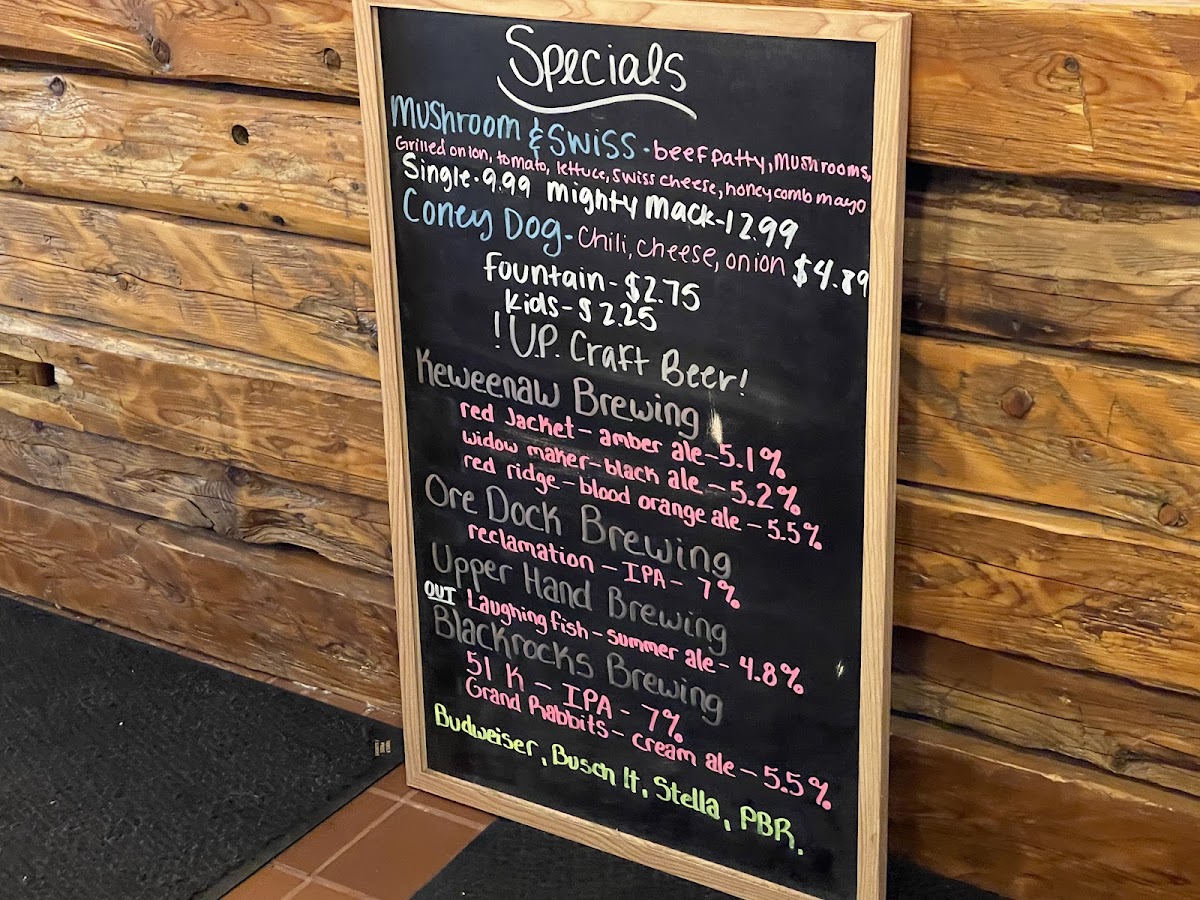 Specials
Mushroom & Swiss - beef patty, mushrooms,
Grilled onion, tomato, lettuce, swiss cheese, honeycomb mayo
Single - 9.99 mighty mack - 12.99
Coney Dog - Chili, cheese, onion $4.89
fountain - $2.75
kids - $2.25
! U.P. Craft Beer!
Keweenaw Brewing
red Jacket - amber ale - 5.1%
widow maker - black ale - 5.2%
red ridge - blood orange ale - 5.5%
Ore Dock Brewing
reclamation - IPA - 7%
Upper Hand Brewing
OUT Laughing fish - summer ale - 4.8%
Blackrocks Brewing
51 K - IPA - 7%
Grand Rabbits - cream ale - 5.5%
Budweiser, Busch lt, Stella, PBR.